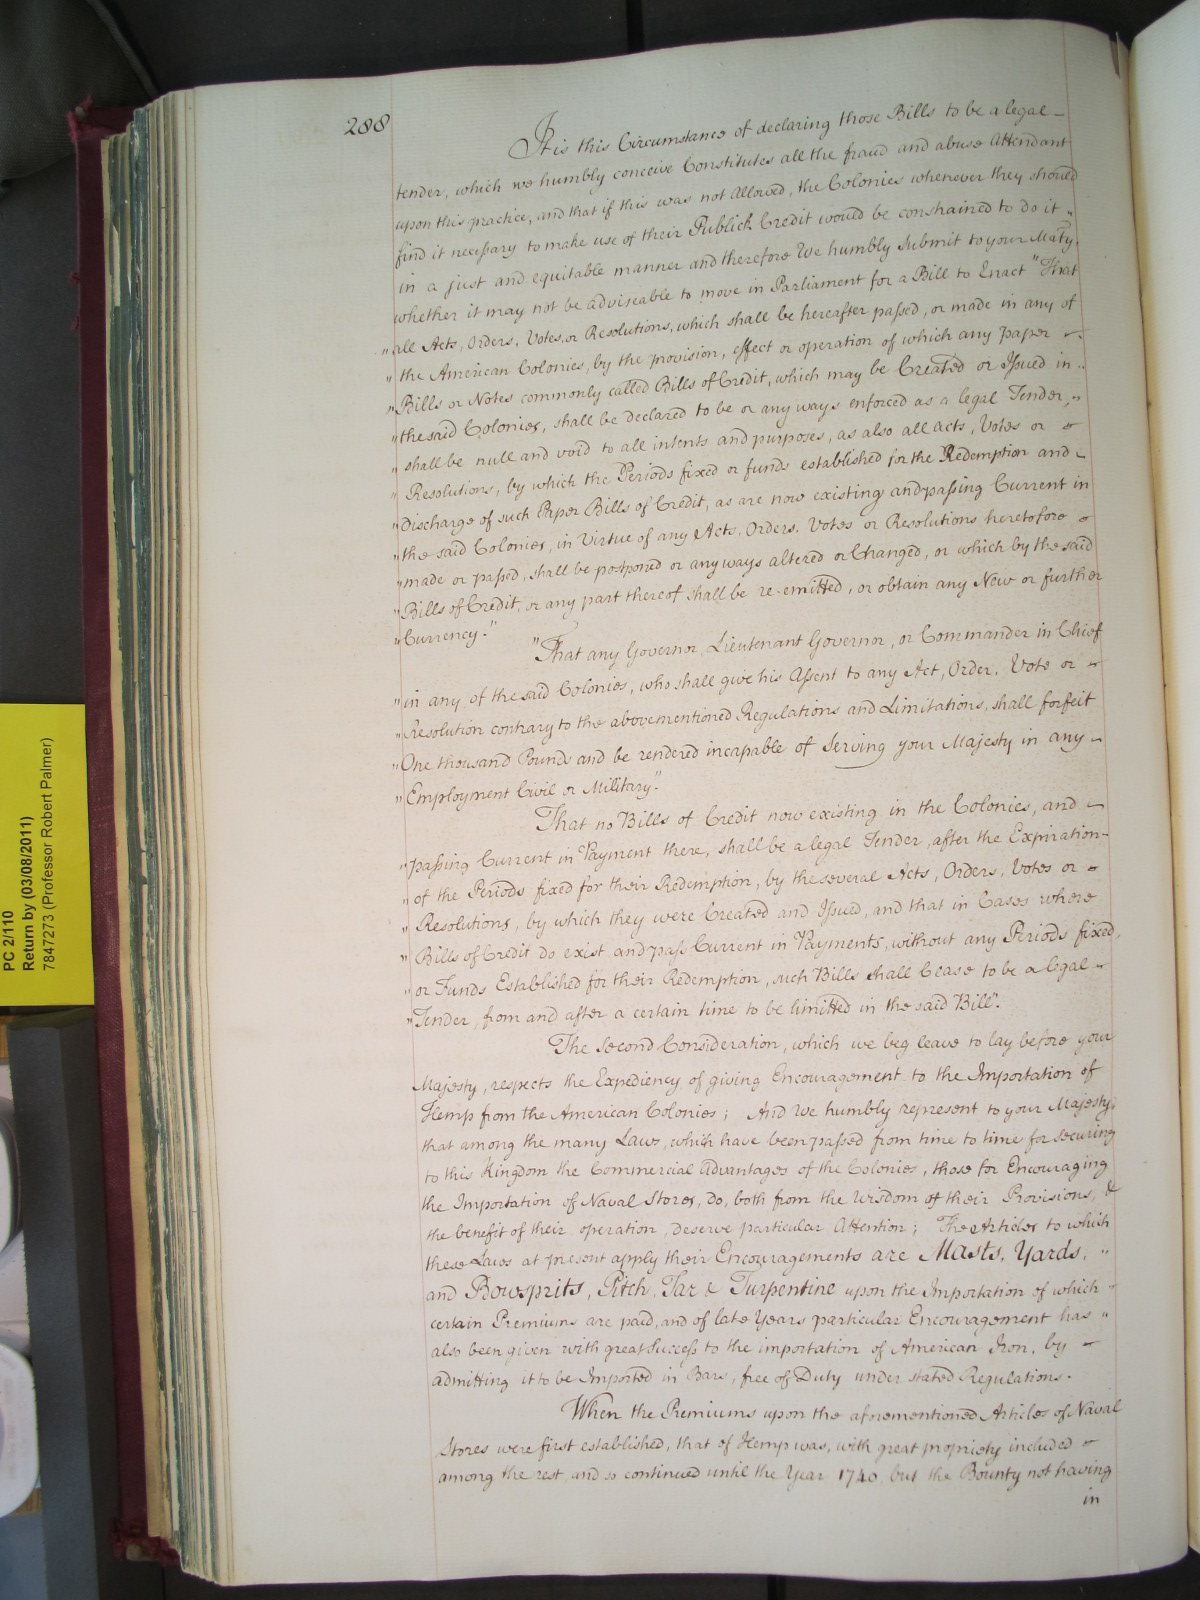 288
It is this Circumstance of declaring those Bills to be a legal
tender, which we humbly conceive Constitutes all the fraud and abuse Attendant
upon this practice, and that if this was not Allowed, the Colonies whenever they should
find it necessary to make use of their Publick Credit would be constrained to do it
in a just and equitable manner and therefore We humbly Submit to your Maty.
whether it may not be adviseable to move in Parliament for a Bill to Enact "That
"all Acts, Orders, Votes, or Resolutions, which shall be hereafter passed, or made in any of
"the American Colonies, by the provision, effect or operation of which any paper
"Bills or Notes commonly called Bills of Credit, which may be Created or Issued in
"the said Colonies, shall be declared to be or any ways enforced as a legal Tender,
"shall be null and void to all intents and purposes, as also all acts, Votes or
"Resolutions, by which the Periods fixed or funds established for the Redemption and
"Discharge of such Paper Bills of Credit, as are now existing and passing Current in
"the said Colonies, in Virtue of any Acts, Orders, Votes or Resolutions heretofore
"made or passed, shall be postponed or any ways altered or Changed, or which by the said
"Bills of Credit, or any part thereof shall be re-emitted, or obtain any New or further
"Currency."
"That any Governor, Lieutenant Governor, or Commander in Chief
"in any of the said Colonies, who shall give his Assent to any Act, Order, Vote or
"Resolution contrary to the abovementioned Regulations and Limitations, shall forfeit
"One thousand Pounds and be rendered incapable of Serving your Majesty in any
"Employment Civil or Military."
That no Bills of Credit now existing in the Colonies, and
"passing Current in Payment there, shall be a legal Tender, after the Expiration
"of the Periods fixed for their Redemption, by the several Acts, Orders, Votes or
"Resolutions, by which they were Created and Issued, and that in Cases where
"Bills of Credit do exist and pass Current in Payments, without any Periods fixed,
"or Funds Established for their Redemption, such Bills shall Cease to be a legal
"Tender, from and after a certain time to be limitted in the said Bill".
The Second Consideration, which we beg leave to lay before your
Majesty, respects the Expediency of giving Encouragement to the Importation of
Hemp from the American Colonies; And We humbly represent to your Majesty,
that among the many Laws, which have been passed from time to time for securing
to this Kingdom the Commercial Advantages of the Colonies, those for Encouraging
the Importation of Naval Stores, do, both from the Wisdom of their Provisions, &
the benefit of their operation, deserve particular Attention; The Articles to which
these Laws at present apply their Encouragements are Masts, Yards,
and Bowsprits, Pitch, Tar & Turpentine upon the Importation of which
certain Premiums are paid, and of late Years particular Encouragement has
also been given with great Success to the importation of American Iron, by
admitting it to be Imported in Bars, free of Duty under stated Regulations.
When the Premiums upon the aforementioned Articles of Naval
Stores were first established, that of Hemp was, with great propriety included
among the rest, and so continued until the Year 1740, but the Bounty not having
in
PC 2/110
Return by (03/08/2011)
7847273 (Professor Robert Palmer)